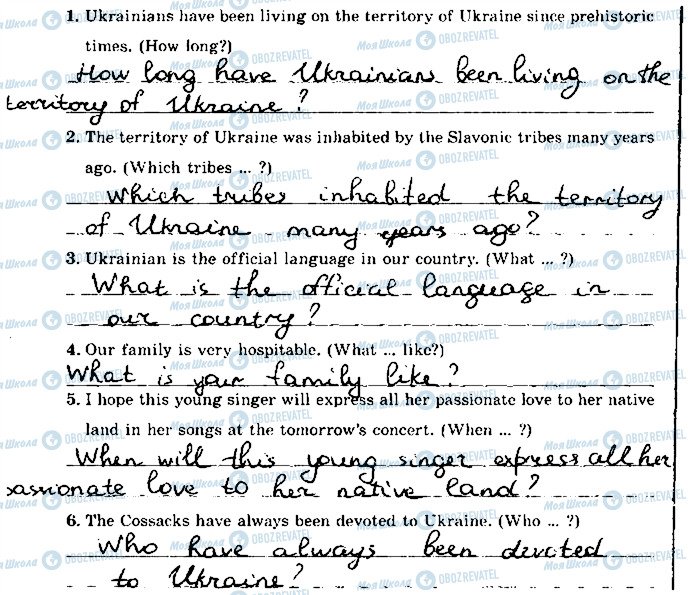 1. Ukrainians have been living on the territory of Ukraine since prehistoric
times. (How long?)
How long have Ukrainians been living on the
territory of Ukraine?
2. The territory of Ukraine was inhabited by the Slavonic tribes many years
ago. (Which tribes ... ?)
Which tribes inhabited the territory
of Ukraine many years ago?
3. Ukrainian is the official language in our country. (What ... ?)
What is the official language in
our country?
4. Our family is very hospitable. (What ... like?)
What is your family like?
5. I hope this young singer will express all her passionate love to her native
land in her songs at the tomorrow's concert. (When ... ?)
When will this young singer express all her
passionate love to her native land?
6. The Cossacks have always been devoted to Ukraine. (Who ... ?)
Who have always been devoted
to Ukraine?